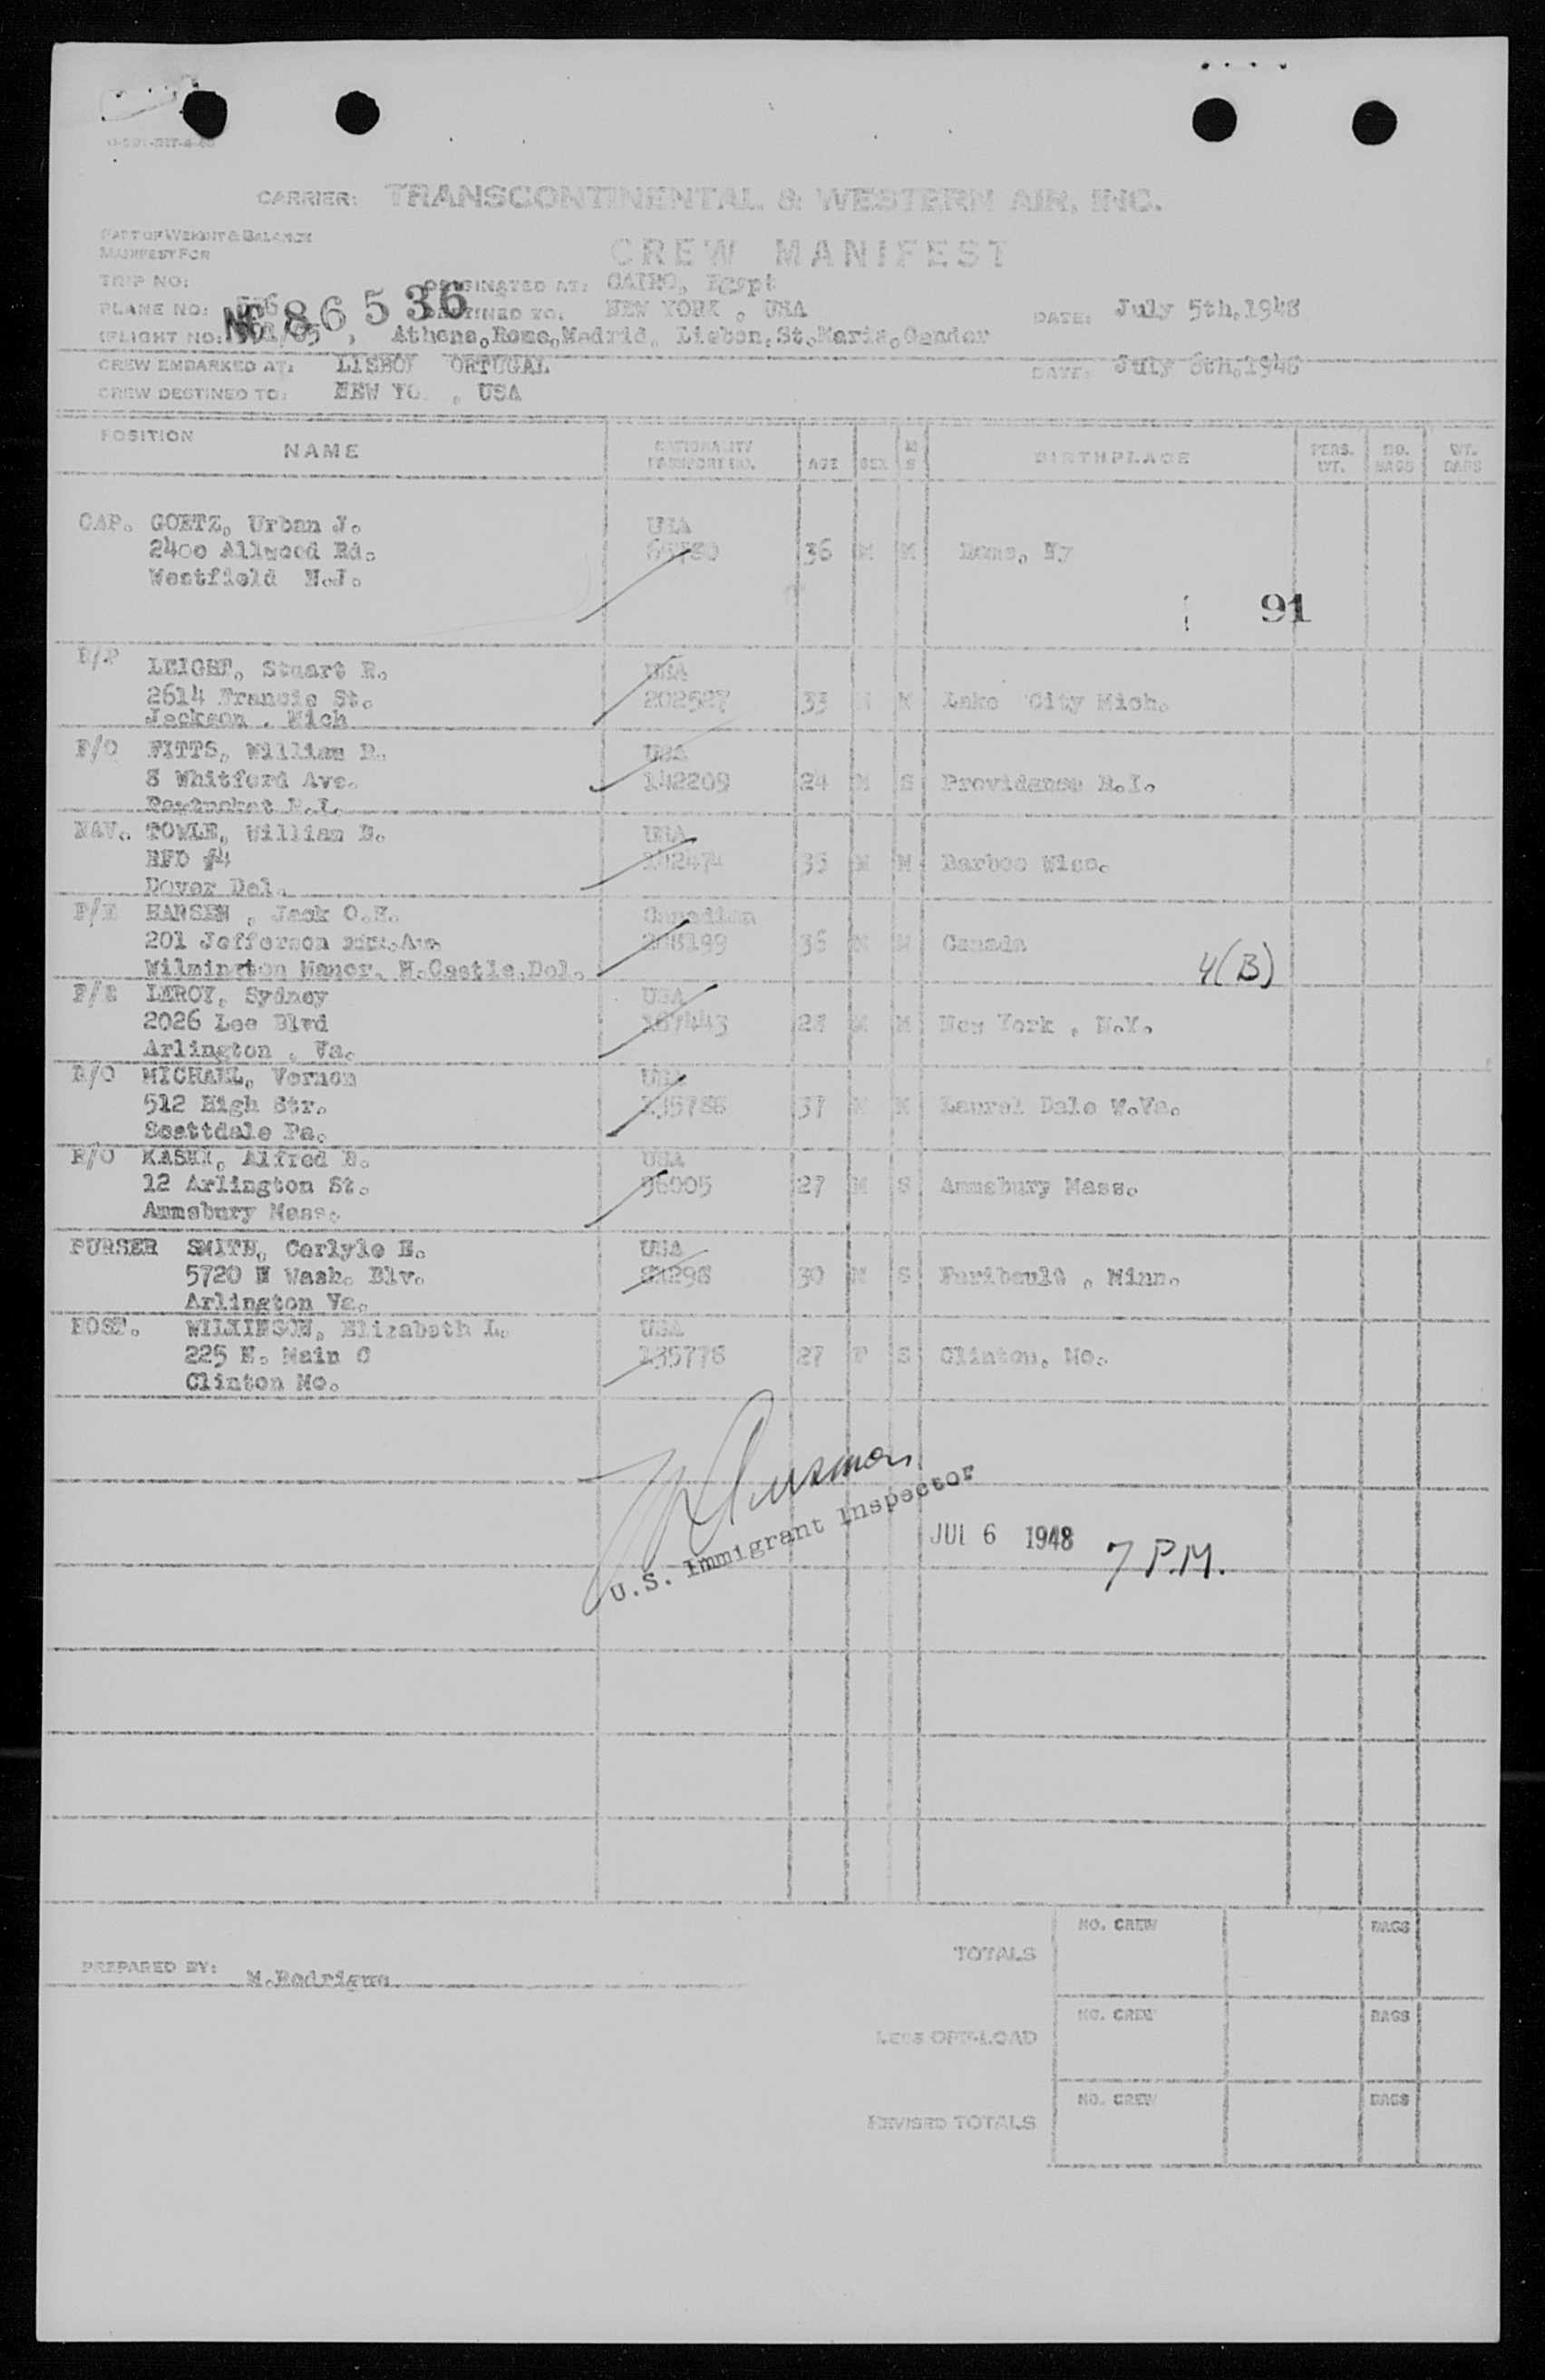 CARRIER: TRANSCONTINENTAL & WESTERN AIR, INC.
PART OF WEIGHT & BALANCE
MANIFEST FOR
CREW MANIFEST
TRIP NO: ORIGINATED AT: CAIRO, Egypt
PLANE NO: DESTINED TO: NEW YORK , USA DATE: July 5th,1948
86536
(FLIGHT NO: , Athens,Rome,Madrid, Lisbon,St.Maria,Gander
CREW EMBARKED AT: LISBON ORTUGAL DATE: July 6th,1948
CREW DESTINED TO: NEW YO , USA
POSITION NAME NATIONALITY PASSPORT NO. AGE SEX M S BIRTHPLACE PERS. WT. NO. BAGS WT. BAGS
CAP. GOETZ, Urban J. USA
2400 Allwood Rd. 36 M M NY
Westfield N.J.
91
LEIGHT, Stuart R. USA
2614 Francis St. 202527 33 M M Lake City Mich.
Jackson , Mich
F/O FITTS, William R. USA
8 Whitford Ave. 142209 24 M S Providence R.I.
Pawtucket R.I.
NAV. TOWLE, William USA
RFD #4 35 M M Barboo Wisc.
Dover Del.
F/E HANSEN , Jack O.H. Canadian
201 Jefferson Ave 36 M M Canada
4(B)
Wilmington Manor, N.Castle,Del.
F/E LEROY, Sydney USA
2026 Lee Blvd 167443 28 M M New York , N.Y.
Arlington , Va.
R/O MICHAEL, Vernon USA
512 High Str. 135786 37 M M Laurel Dale W.Va.
Scottdale Pa.
R/O Alfred USA
12 Arlington St. 96005 27 M S Ammsbury Mass.
Ammsbury Mass.
PURSER SMITH, Carlyle E. USA
5720 N Wash. Blv. 30 M S Faribault , Minn.
Arlington Va.
HOST. WILKINSON, Elizabeth L. USA
225 N. Main 135776 27 F S Clinton, Mo.
Clinton Mo.
U.S. Immigrant Inspector
JUL 6 1948 7 P.M.
NO. CREW BAGS
TOTALS
PREPARED BY: M.Rodrigue
NO. CREW BAGS
LESS OFF-LOAD
NO. CREW BAGS
REVISED TOTALS